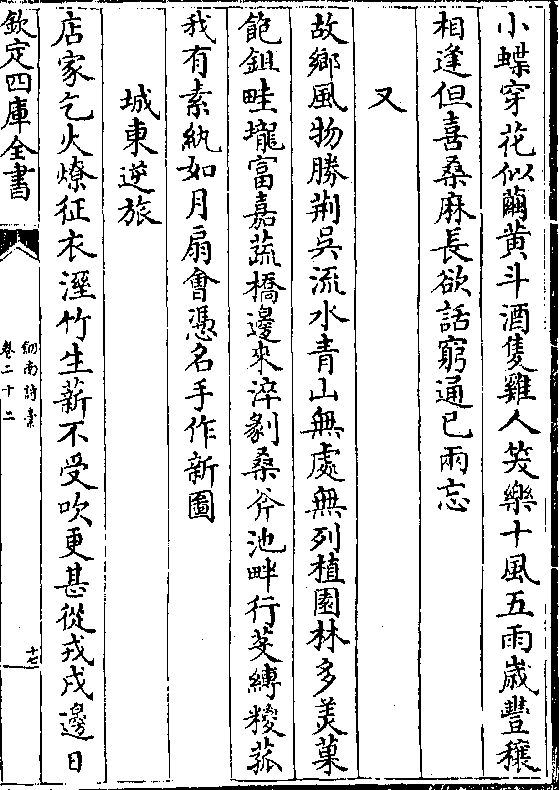 小蝶穿花似繭黄斗酒隻雞人笑樂十風五雨嵗豐穰
相逢但喜桑麻長欲話窮通已兩忘
又
故鄉風物勝荆吳流水青山無處無列植園林多羙菓
飽鉏畦壠富嘉蔬橋邊來淬劖桑斧池畔行芟縛糉菰
我有素紈如月扇會憑名手作新圖
城東逆旅
店家乞火燎征衣溼竹生薪不受吹更甚從戎戍邊日
欽定四庫全書
劒南詩稾
卷二十二
十七